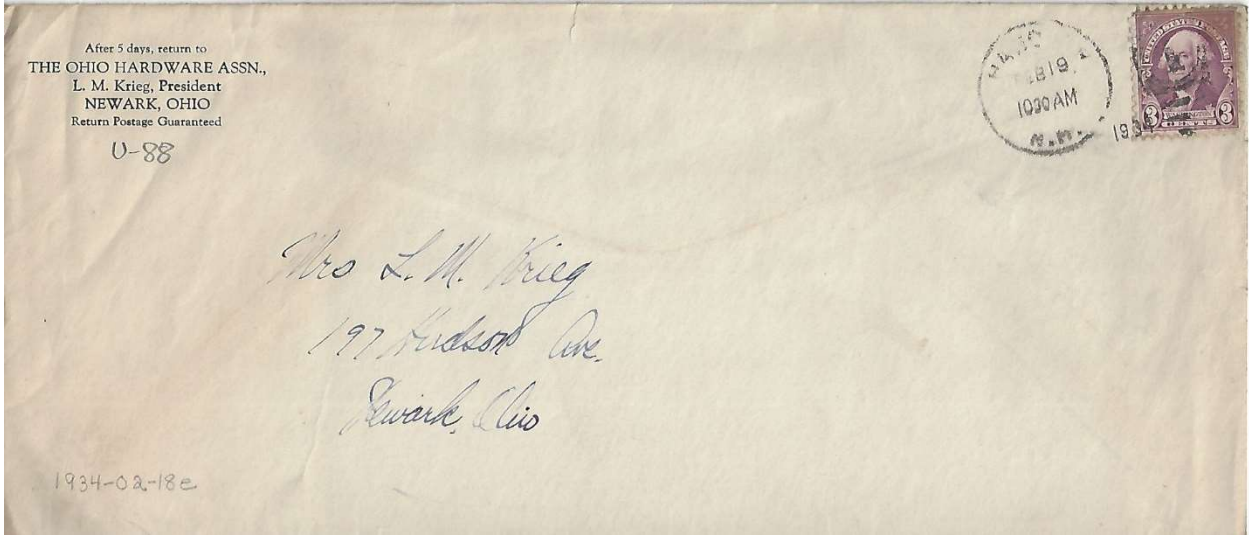 After 5 days, return to
THE OHIO HARDWARE ASSN.,
L. M. Krieg, President
NEWARK, OHIO
Return Postage Guaranteed
U-88
FEB 19
1030 AM
N.M.
1934
UNITED STATES POSTAGE
3 WASHINGTON 3
CENTS
Mrs L. M. Krieg
197 Hudson Ave.
Newark, Ohio
1934-02-18e